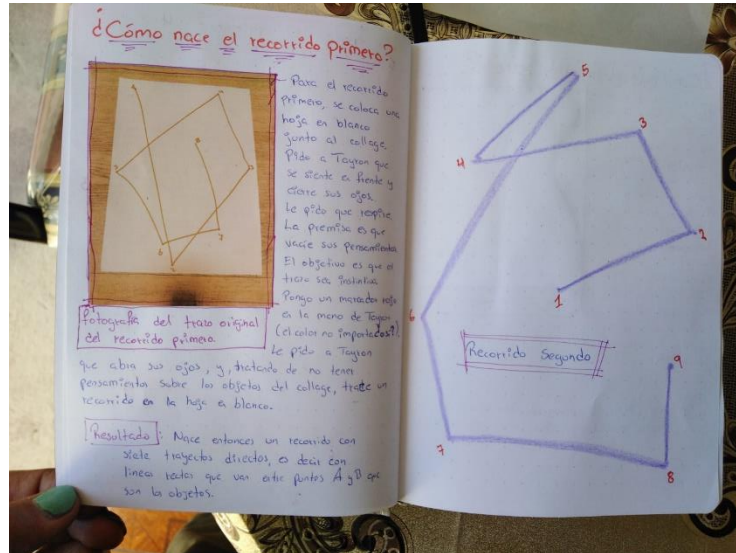 ¿Cómo nace el recorrido primero?
Para el recorrido
primero, se coloca una
hoja en blanco
junto al collage.
Pido a Tayron que
se siente en frente y
cierre sus ojos.
Le pido que respire.
La premisa es que
vacíe sus pensamientos.
El objetivo es que el
trazo sea instintivo.
Pongo un marcador rojo
en la mano de Tayron
(el color no importa
Le pido a Tayron
que abra sus ojos, y, tratando de no tener
pensamientos sobre los objetos del collage, trace un
recorrido en la hoja en blanco.
Fotografía del trazo original
del recorrido primero.
Resultado: Nace entonces un recorrido con
siete trayectos directos, es decir con
líneas rectas que van entre puntos A y B que
son los objetos.
5
3
4
2
1
6
Recorrido Segundo
9
7
8